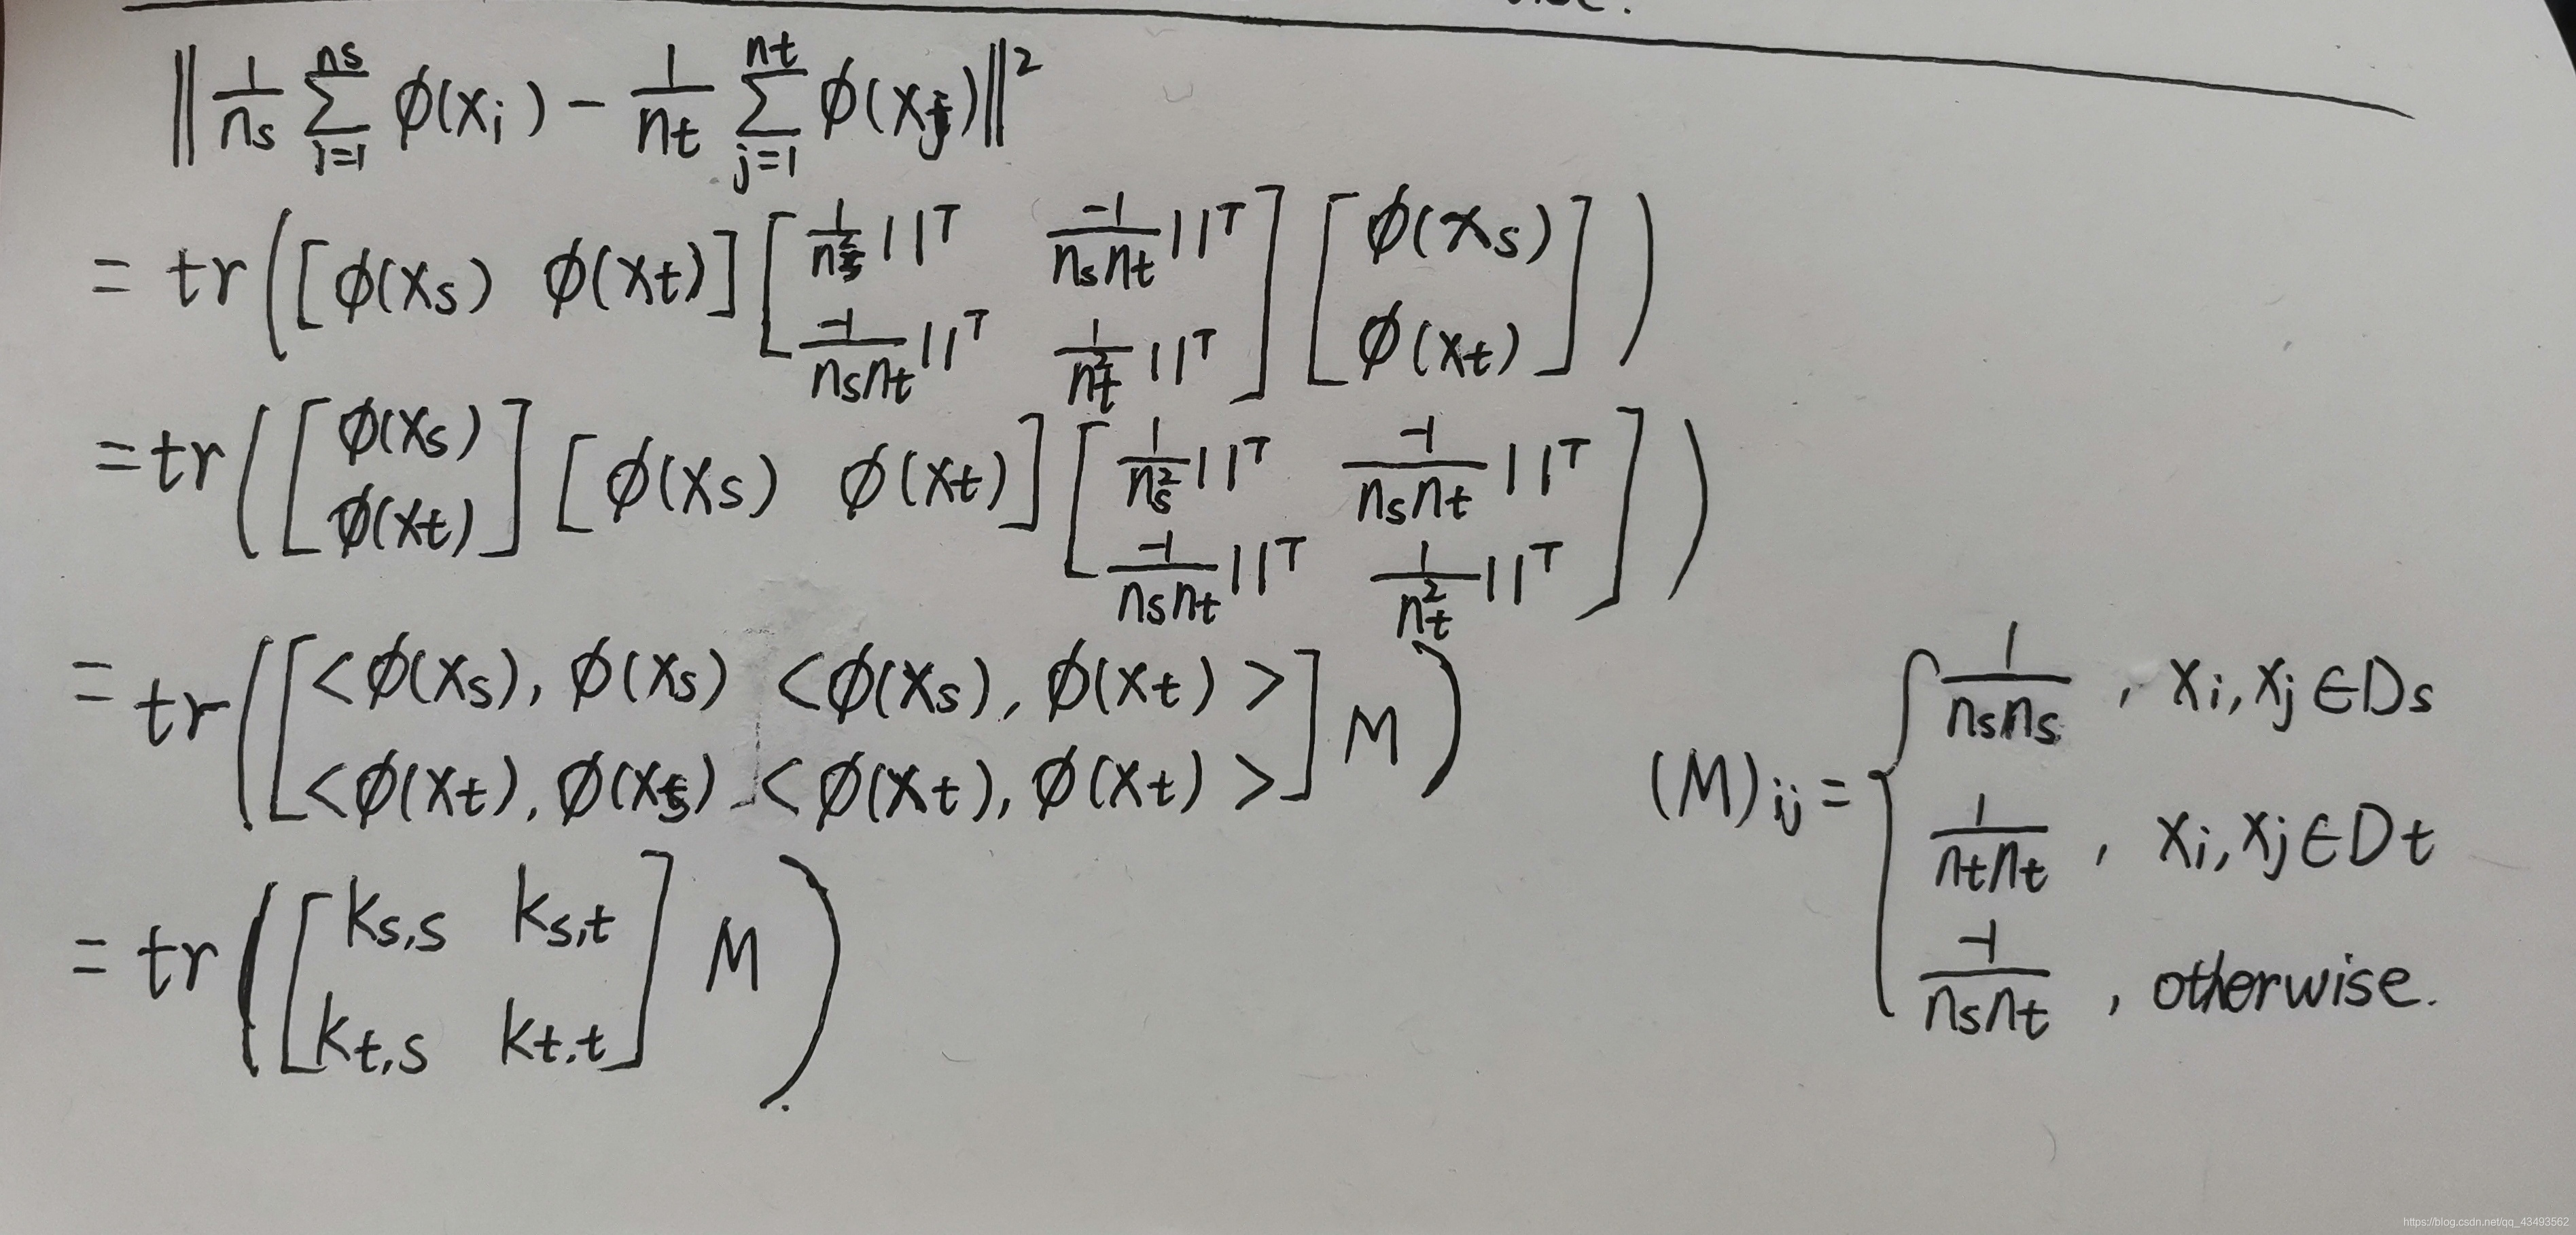 ‖ 1/n_s ∑_{i=1}^{ns} ϕ(x_i) − 1/n_t ∑_{j=1}^{nt} ϕ(x_j) ‖²
= tr( [ϕ(x_s) ϕ(x_t)] [ 1/n_s² 11^T  −1/(n_s n_t) 11^T ; −1/(n_s n_t) 11^T  1/n_t² 11^T ] [ ϕ(x_s) ; ϕ(x_t) ] )
= tr( [ ϕ(x_s) ; ϕ(x_t) ] [ϕ(x_s) ϕ(x_t)] [ 1/n_s² 11^T  −1/(n_s n_t) 11^T ; −1/(n_s n_t) 11^T  1/n_t² 11^T ] )
= tr( [ <ϕ(x_s), ϕ(x_s)  <ϕ(x_s), ϕ(x_t)> ; <ϕ(x_t), ϕ(x_s)  <ϕ(x_t), ϕ(x_t)> ] M )
= tr( [ k_{s,s}  k_{s,t} ; k_{t,s}  k_{t,t} ] M )
(M)_{ij} = { 1/(n_s n_s) , x_i, x_j ∈ D_s
1/(n_t n_t) , x_i, x_j ∈ D_t
−1/(n_s n_t) , otherwise.
https://blog.csdn.net/qq_43493562